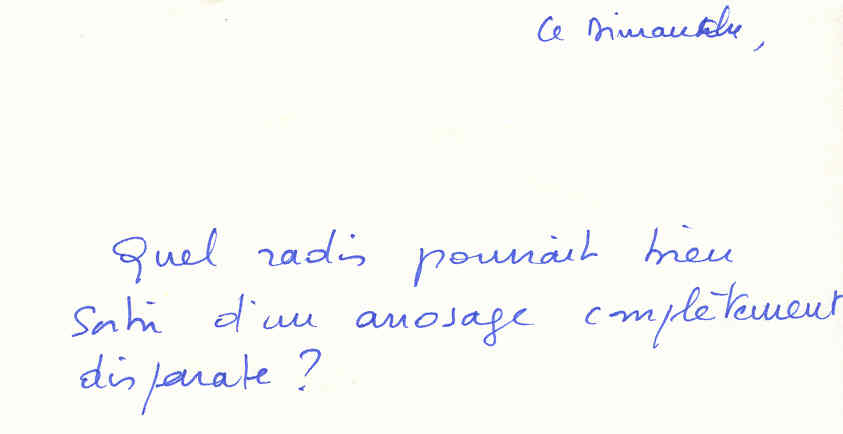 Ce Dimanche,
Quel radis pourrait bien
sortir d'un arrosage complètement
disparate ?